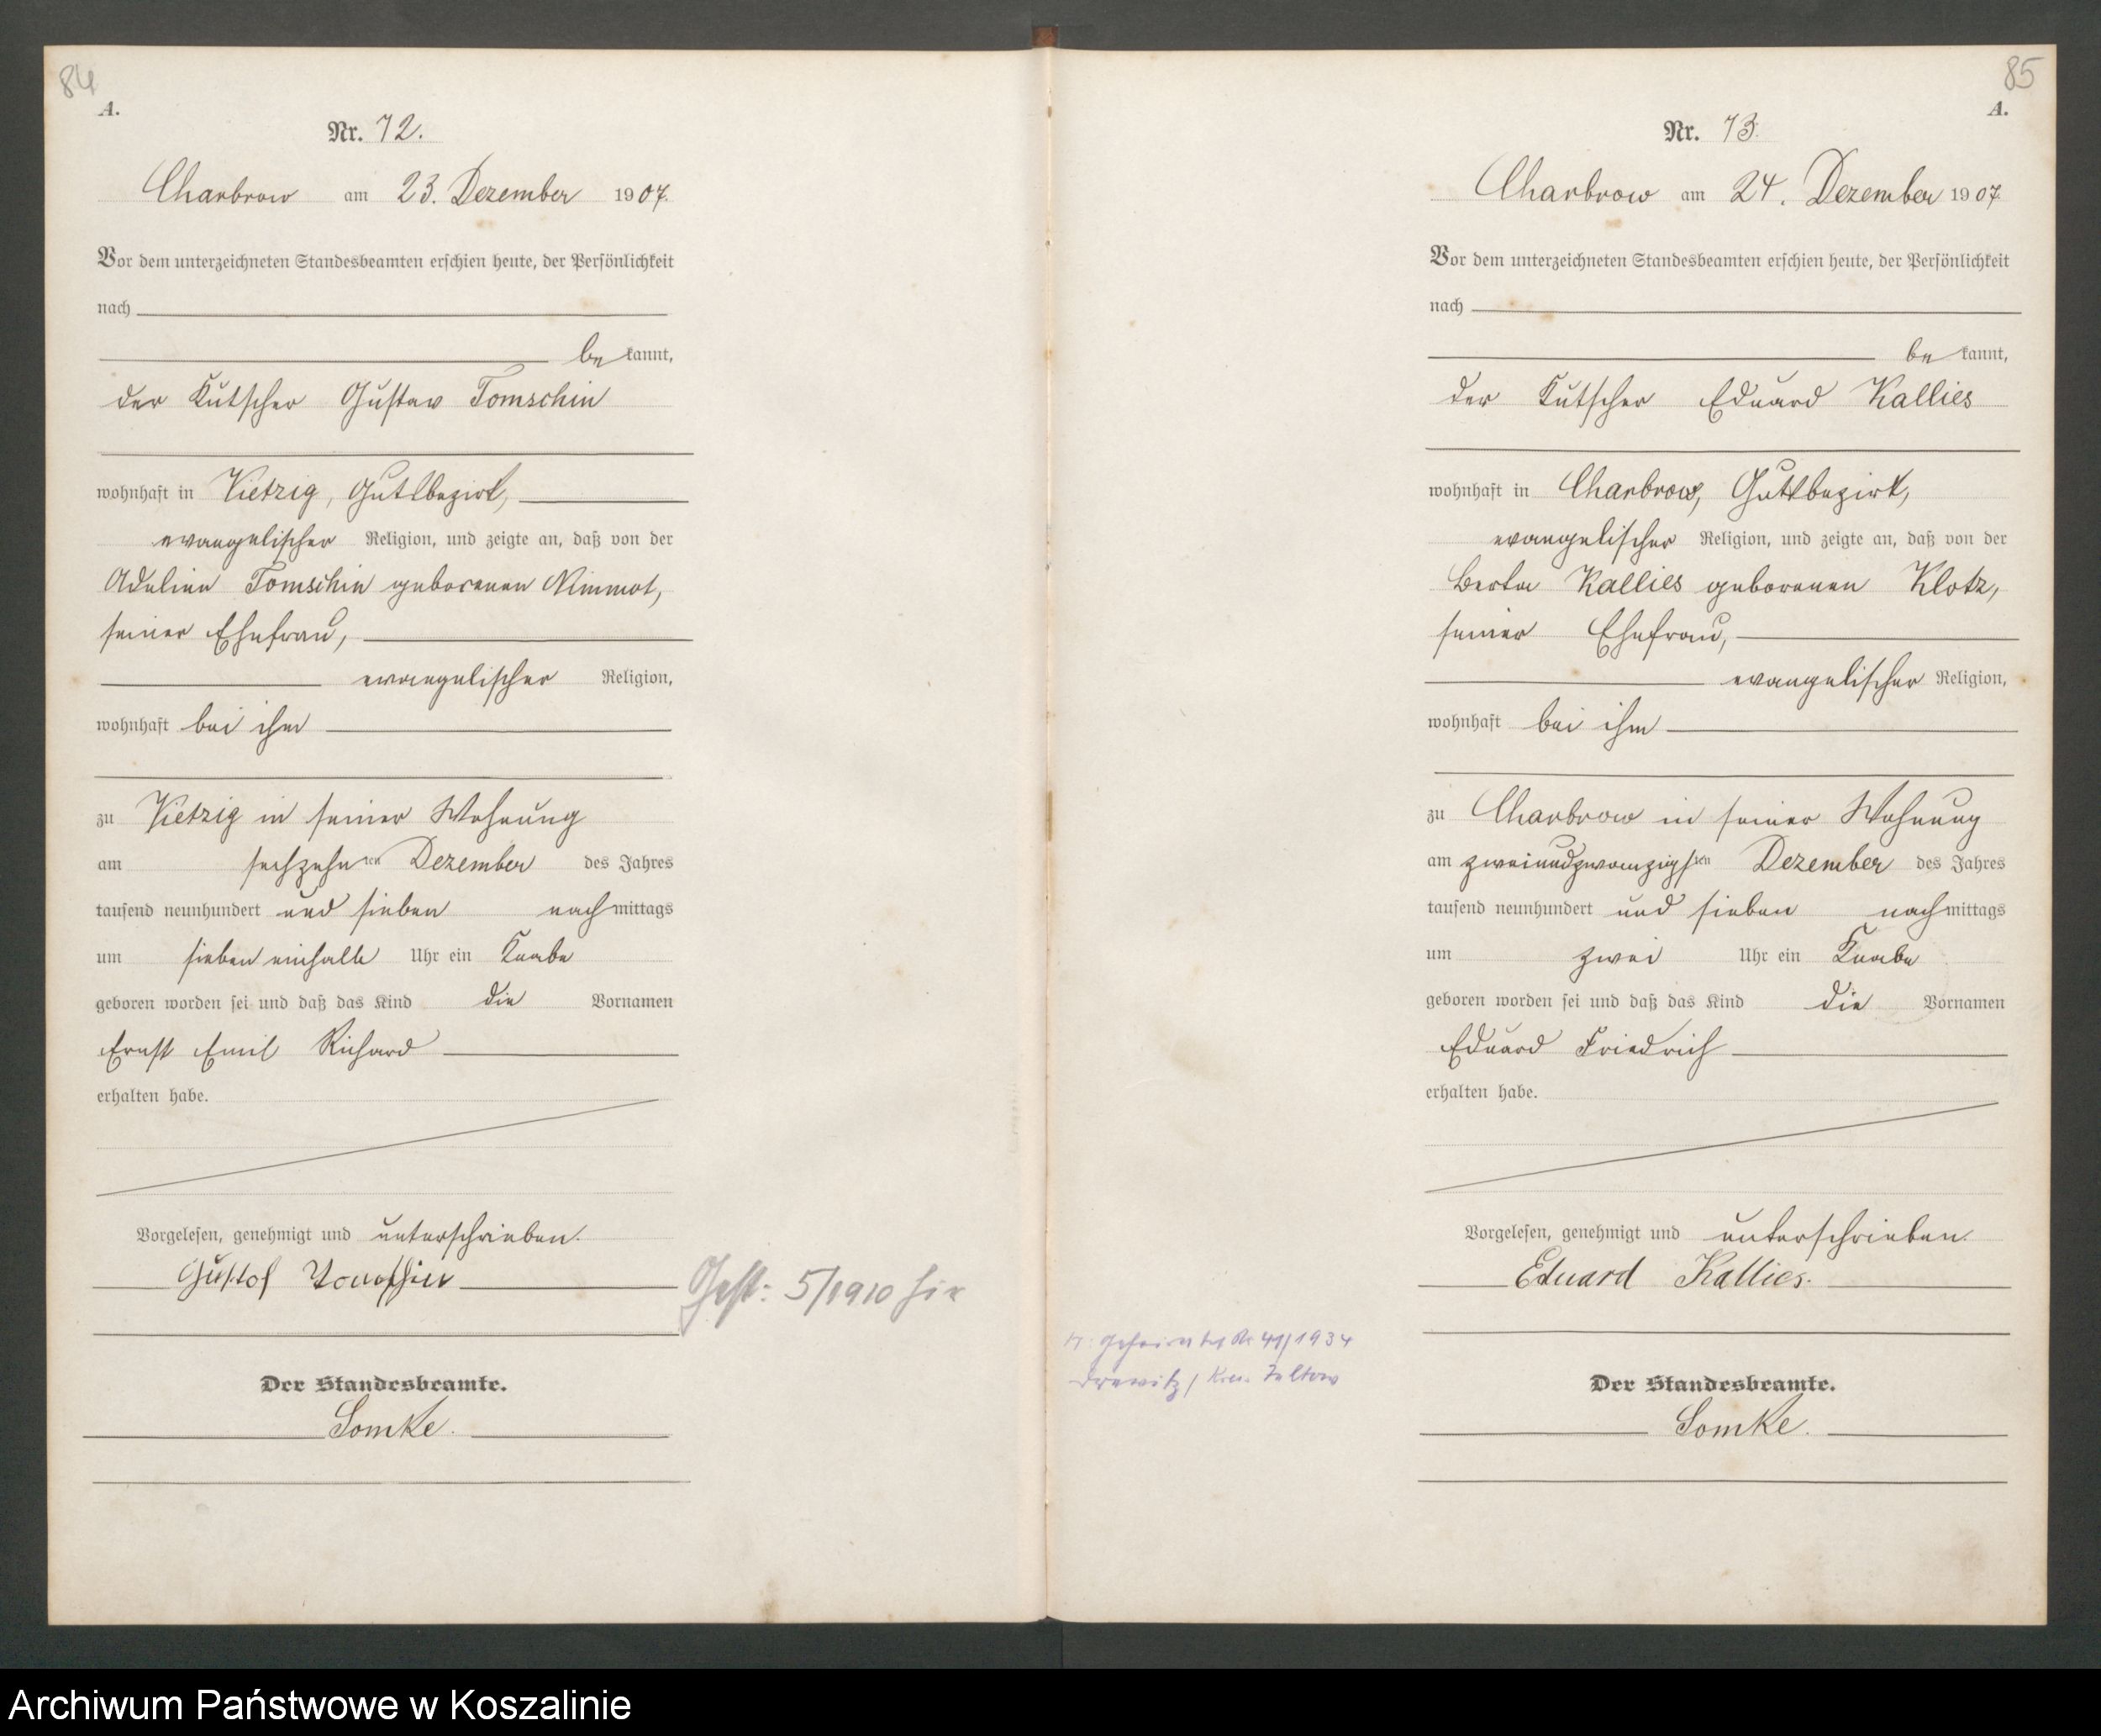 84
A.
Nr. 72.
Charbrow am 23. Dezember 1907.
Vor dem unterzeichneten Standesbeamten erschien heute, der Persönlichkeit
nach
bekannt,
der Kutscher Gustav Tomschin
wohnhaft in Vietzig, Gutsbezirk,
evangelischer Religion, und zeigte an, daß von der
Adeline Tomschin geborenen Nimmot,
seiner Ehefrau,
evangelischer Religion,
wohnhaft bei ihm
zu Vietzig in seiner Wohnung
am sechzehnten Dezember des Jahres
tausend neunhundert und sieben nachmittags
um sieben einhalb Uhr ein Knabe
geboren worden sei und daß das Kind die Vornamen
Ernst Emil Richard
erhalten habe.
Vorgelesen, genehmigt und unterschrieben.
Gustof Tomschin
Gest: 5/1910 hier
Der Standesbeamte.
Somke.
85
A.
Nr. 73.
Charbrow am 24. Dezember 1907
Vor dem unterzeichneten Standesbeamten erschien heute, der Persönlichkeit
nach
bekannt,
der Kutscher Eduard Kallies
wohnhaft in Charbrow, Gutsbezirk,
evangelischer Religion, und zeigte an, daß von der
Berta Kallies geborenen Klotz,
seiner Ehefrau,
evangelischer Religion,
wohnhaft bei ihm
zu Charbrow in seiner Wohnung
am zweiundzwanzigsten Dezember des Jahres
tausend neunhundert und sieben nachmittags
um zwei Uhr ein Knabe
geboren worden sei und daß das Kind die Vornamen
Eduard Friedrich
erhalten habe.
Vorgelesen, genehmigt und unterschrieben.
Eduard Kallies.
geheiratet Nr 41/1934
Drewitz / Kreis Teltow
Der Standesbeamte.
Somke.
Archiwum Państwowe w Koszalinie